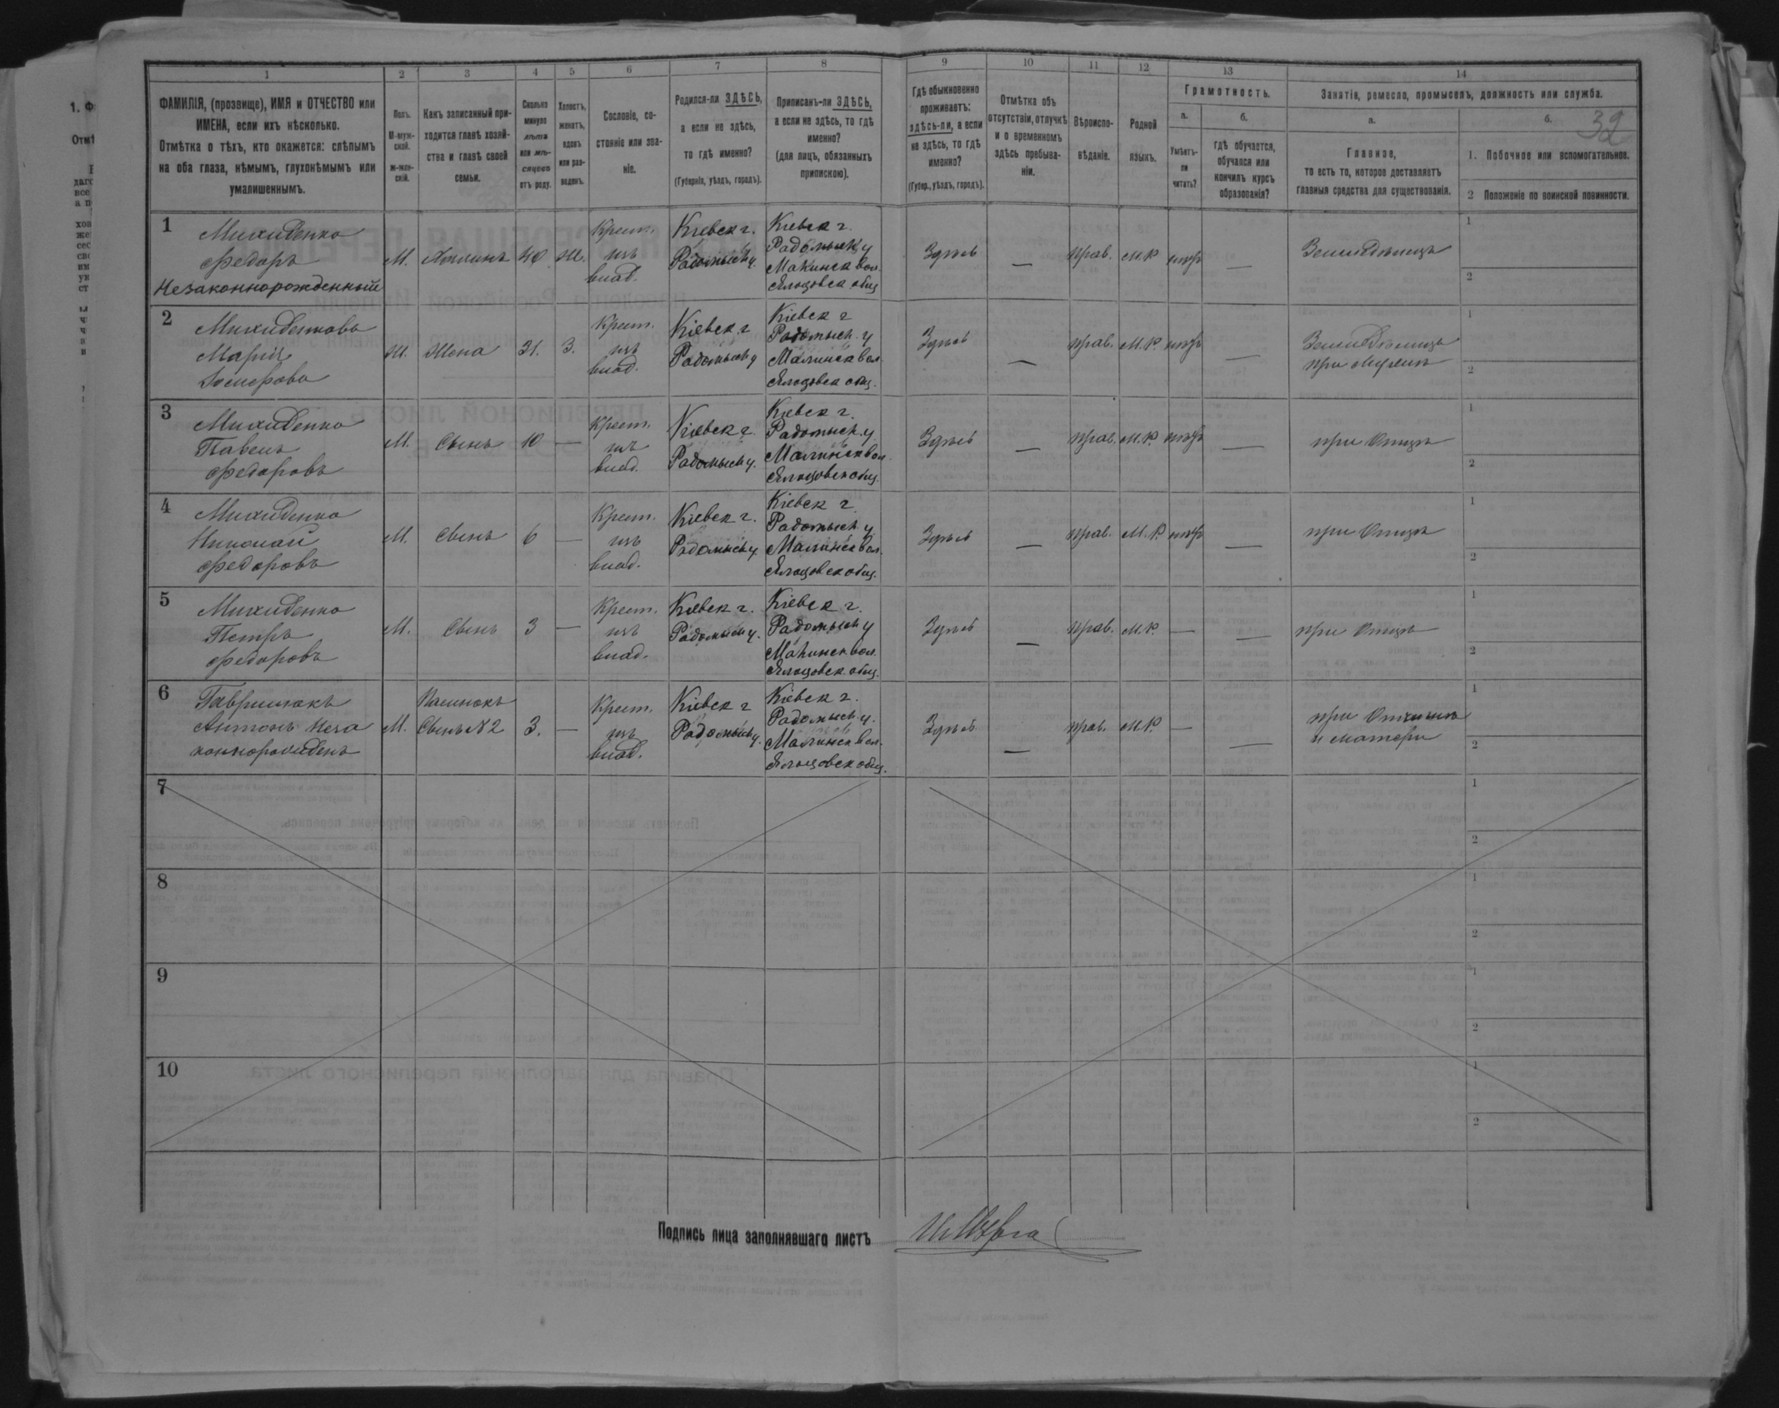 1 2 3 4 5 6 7 8 9 10 11 12 13 14
32
ФАМИЛІЯ, (прозвище), ИМЯ и ОТЧЕСТВО или
ИМЕНА, если ихъ нѣсколько.
Отмѣтка о тѣхъ, кто окажется: слѣпымъ
на оба глаза, нѣмымъ, глухонѣмымъ или
умалишеннымъ.
Полъ.
М-муж-
ской.
ж-жен-
скій.
Какъ записанный при-
ходится главѣ хозяй-
ства и главѣ своей
семьи.
Сколько
минуло
лѣтъ
или мѣ-
сяцевъ
отъ роду.
Холостъ,
женатъ,
вдовъ
или раз-
веденъ.
Сословіе, со-
стояніе или зва-
ніе.
Родился-ли ЗДѢСЬ,
а если не здѣсь,
то гдѣ именно?
(Губернія, уѣздъ, городъ).
Приписанъ-ли ЗДѢСЬ,
а если не здѣсь, то гдѣ
именно?
(для лицъ, обязанныхъ
припискою).
Гдѣ обыкновенно
проживаетъ:
здѣсь-ли, а если
не здѣсь, то гдѣ
именно?
(Губер., уѣздъ, городъ).
Отмѣтка объ
отсутствіи, отлучкѣ
и о временномъ
здѣсь пребыва-
ніи.
Вѣроиспо-
вѣданіе.
Родной
языкъ.
Грамотность.
а.
Умѣетъ-
ли
читать?
б.
гдѣ обучается,
обучался или
кончилъ курсъ
образованія?
Занятіе, ремесло, промыселъ, должность или служба.
а.
Главное,
то есть то, которое доставляетъ
главныя средства для существованія.
б.
1. Побочное или вспомогательное.
2 Положеніе по воинской повинности.
1
Михиденко
Федоръ
Незаконнорожденный
М. Хозяинъ 40 Ж.
Крест.
изъ
влад.
Кіевск г.
Радомысл у.
Кіевск г.
Радомысл у
Малинск вол.
Яльцовск общ
Здѣсь — прав. М.Р. нѣтъ —
Земледѣлецъ
1
2
2
Михиденкова
Марія
М. Жена 31. З.
Крест.
изъ
влад.
Кіевск г
Радомысл у
Кіевск г
Радомысл у
Малинск вол
Яльцовск общ.
Здѣсь — прав. М.Р. нѣтъ —
Земледѣлецъ
при мужѣ
1
2
3
Михиденко
Павелъ
Федоровъ
М. Сынъ 10 —
Крест.
изъ
влад.
Кіевск г
Радомысл у.
Кіевск г.
Радомысл у
Малинск вол
Яльцовск общ
Здѣсь — прав. М.Р. нѣтъ —
при Отцѣ
1
2
4
Михиденко
Николай
Федоровъ
М. Сынъ 6 —
Крест.
изъ
влад.
Кіевск г.
Радомысл у
Кіевск г
Радомысл у
Малинск вол.
Яльцовск общ.
Здѣсь — прав. М.Р нѣтъ —
при Отцѣ
1
2
5
Михиденко
Петръ
Федоровъ
М. Сынъ 3 —
Крест.
изъ
влад.
Кіевск г.
Радомысл у.
Кіевск г.
Радомысл у
Малинск вол.
Яльцовск общ
Здѣсь — прав. М.Р. — —
при Отцѣ
1
2
6
Гаврилюкъ
Антонъ Неза
коннорожденъ
М.
Пасынокъ
Сынъ №2
3. —
Крест.
изъ
влад.
Кіевск г
Радомысл у.
Кіевск г.
Радомысл у.
Малинск вол.
Яльцовск общ.
Здѣсь — прав. М.Р. — —
при Отчимѣ
и матери
1
2
7
1
2
8
1
2
9
1
2
10
1
2
Подпись лица заполнявшаго листъ